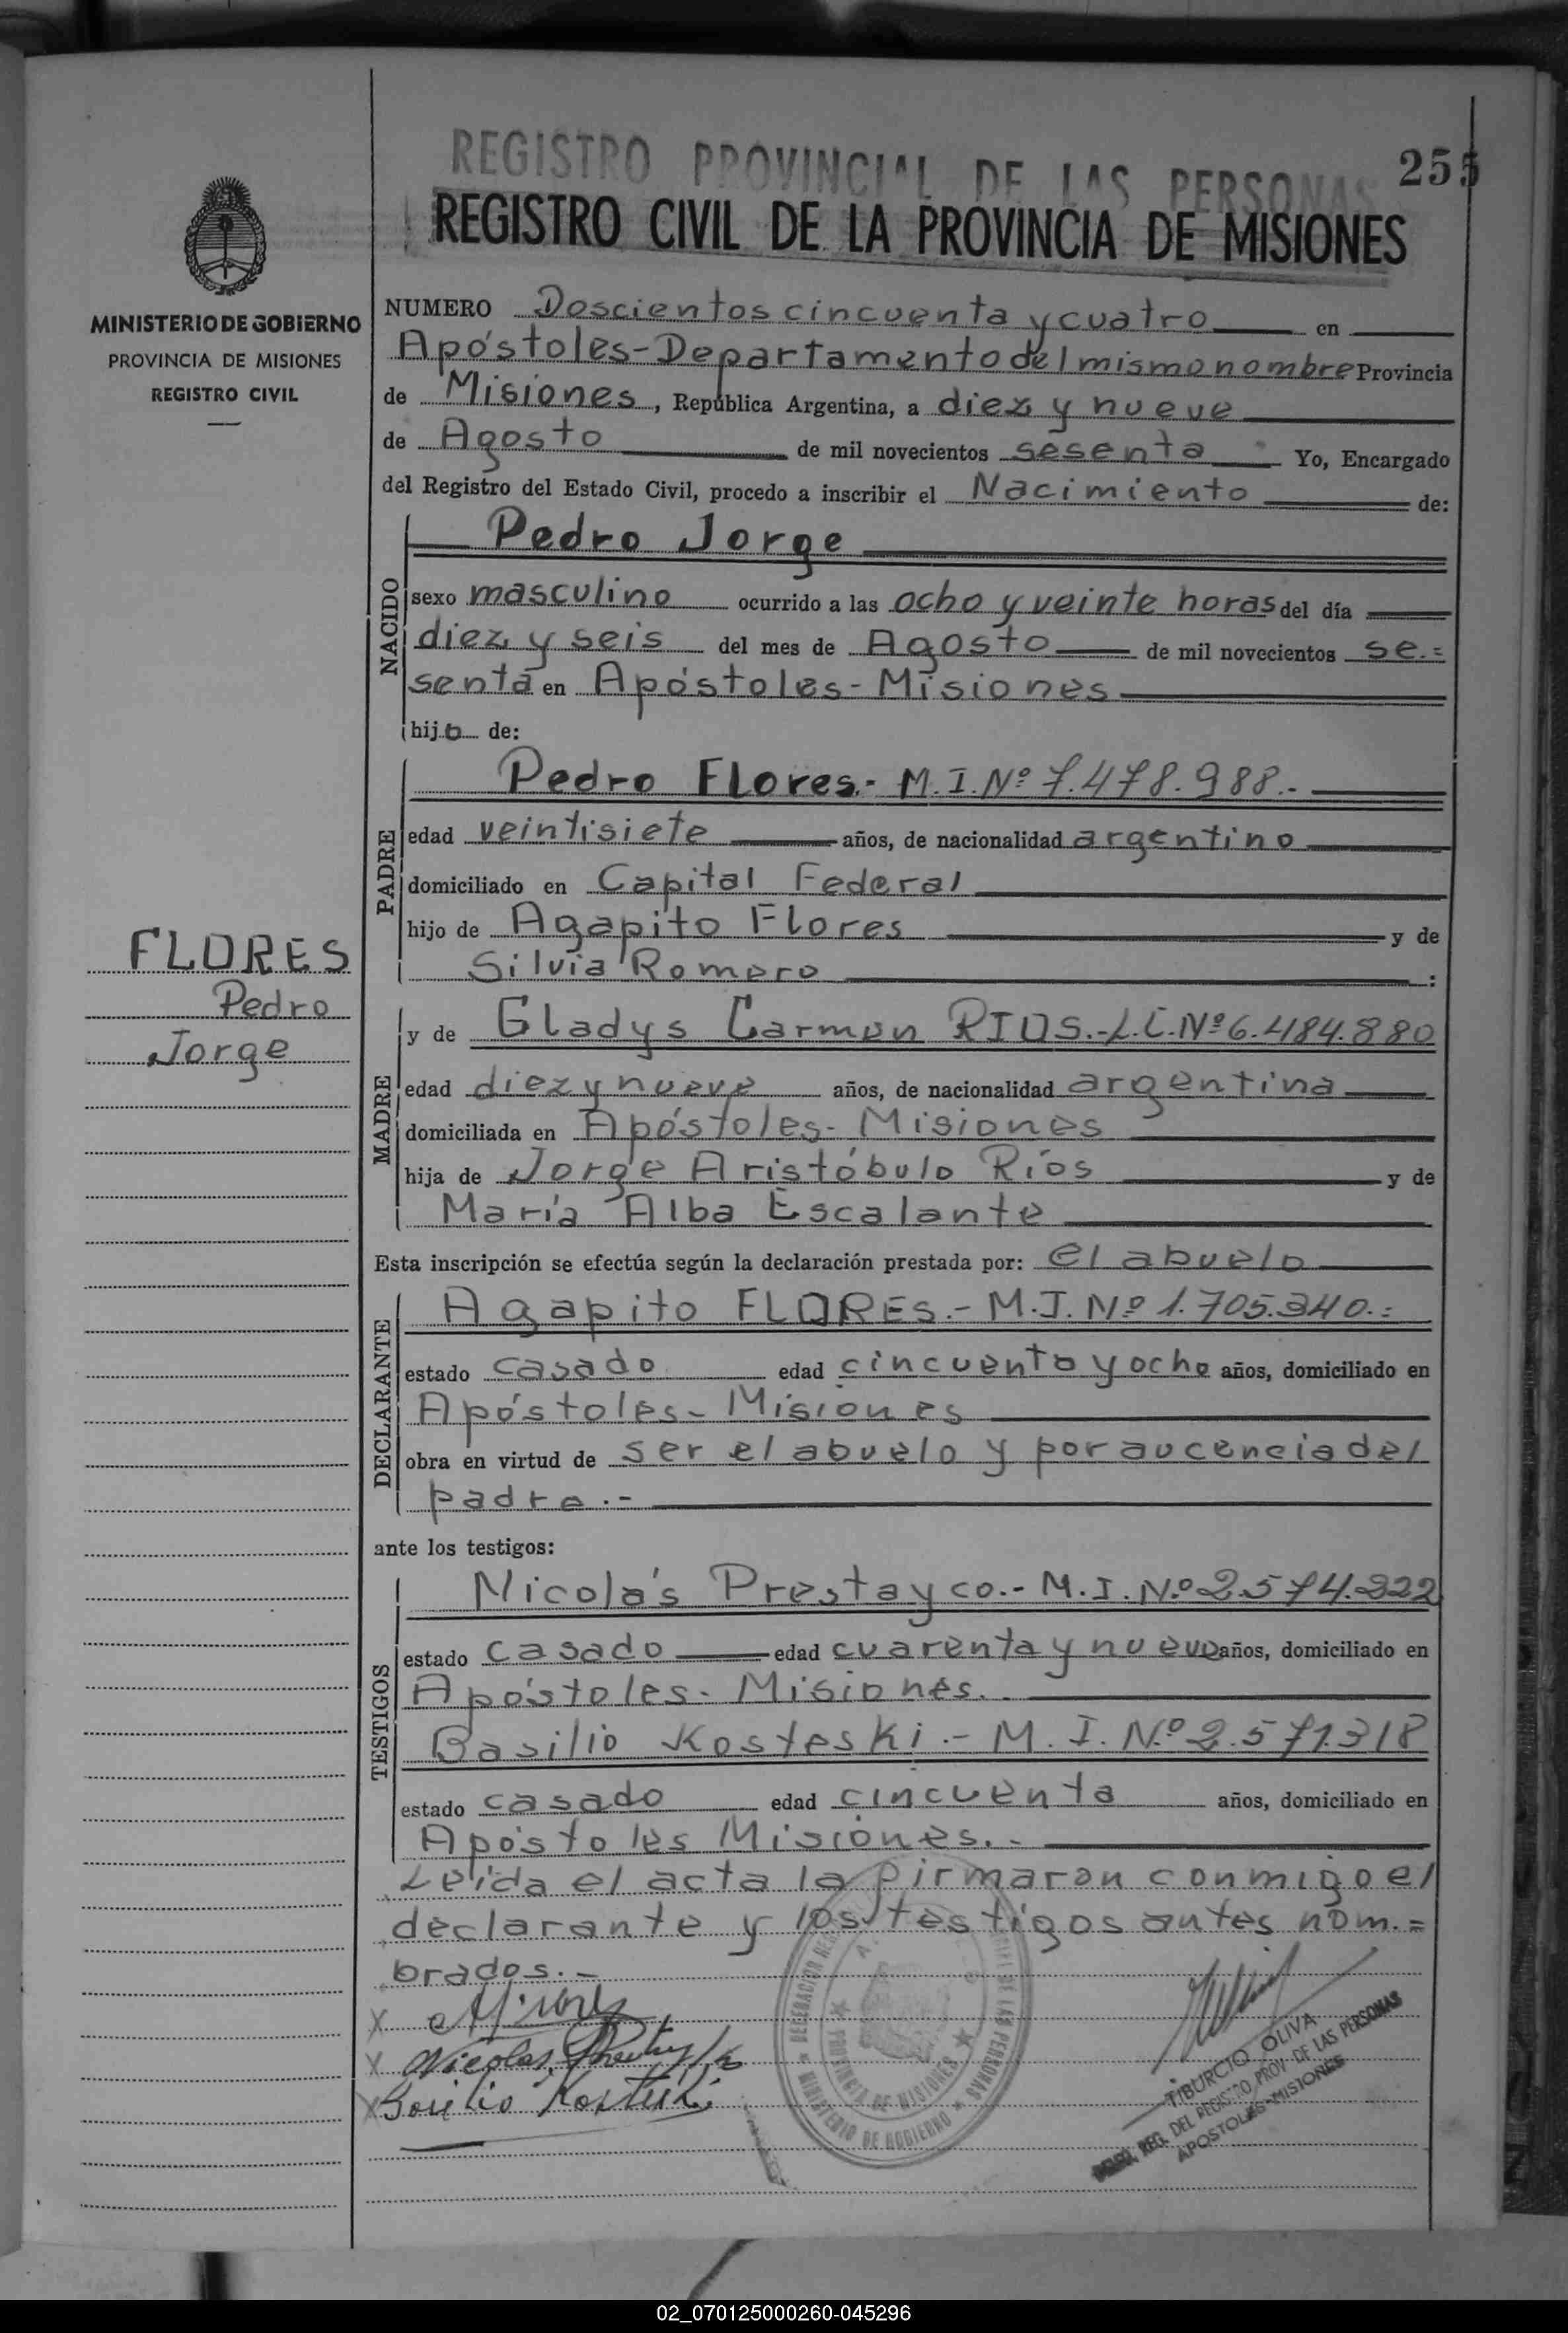 REGISTRO PROVINCIAL DE LAS PERSONAS
255
REGISTRO CIVIL DE LA PROVINCIA DE MISIONES
MINISTERIO DE GOBIERNO
PROVINCIA DE MISIONES
REGISTRO CIVIL
FLORES
Pedro
Jorge
NUMERO Doscientos cincuenta y cuatro en
Apóstoles-Departamento del mismo nombre Provincia
de Misiones, República Argentina, a diez y nueve
de Agosto de mil novecientos sesenta Yo, Encargado
del Registro del Estado Civil, procedo a inscribir el Nacimiento de:
NACIDO
Pedro Jorge
sexo masculino ocurrido a las ocho y veinte horas del día
diez y seis del mes de Agosto de mil novecientos se.=
senta en Apóstoles-Misiones
hijo de:
PADRE
Pedro Flores.- M.I.Nº 7.478.988.-
edad veintisiete años, de nacionalidad argentino
domiciliado en Capital Federal
hijo de Agapito Flores y de
Silvia Romero :
MADRE
y de Gladys Carmen RIOS.-L.C.Nº 6.484.880
edad diez y nueve años, de nacionalidad argentina
domiciliada en Apóstoles- Misiones
hija de Jorge Aristóbulo Ríos y de
María Alba Escalante
Esta inscripción se efectúa según la declaración prestada por: el abuelo
DECLARANTE
Agapito FLORES.- M.I.Nº 1.705.340.=
estado casado edad cincuenta y ocho años, domiciliado en
Apóstoles- Misiones
obra en virtud de ser el abuelo y por aucencia del
padre.-
ante los testigos:
TESTIGOS
Nicolás Prestayco.- M.I.Nº 2.574.222
estado casado edad cuarenta y nueve años, domiciliado en
Apóstoles- Misiones.
Basilio Kosteski.- M.I.Nº 2.571.318
estado casado edad cincuenta años, domiciliado en
Apóstoles Misiones.-
Leída el acta la firmaron conmigo el
declarante y los testigos antes nom.=
brados.-
X
X Nicolas
X Basilio Kosteski
MINISTERIO DE GOBIERNO
PROVINCIA DE MISIONES
TIBURCIO OLIVA
REG. DEL REGISTRO PROV. DE LAS PERSONAS
APOSTOLES-MISIONES
02_070125000260-045296